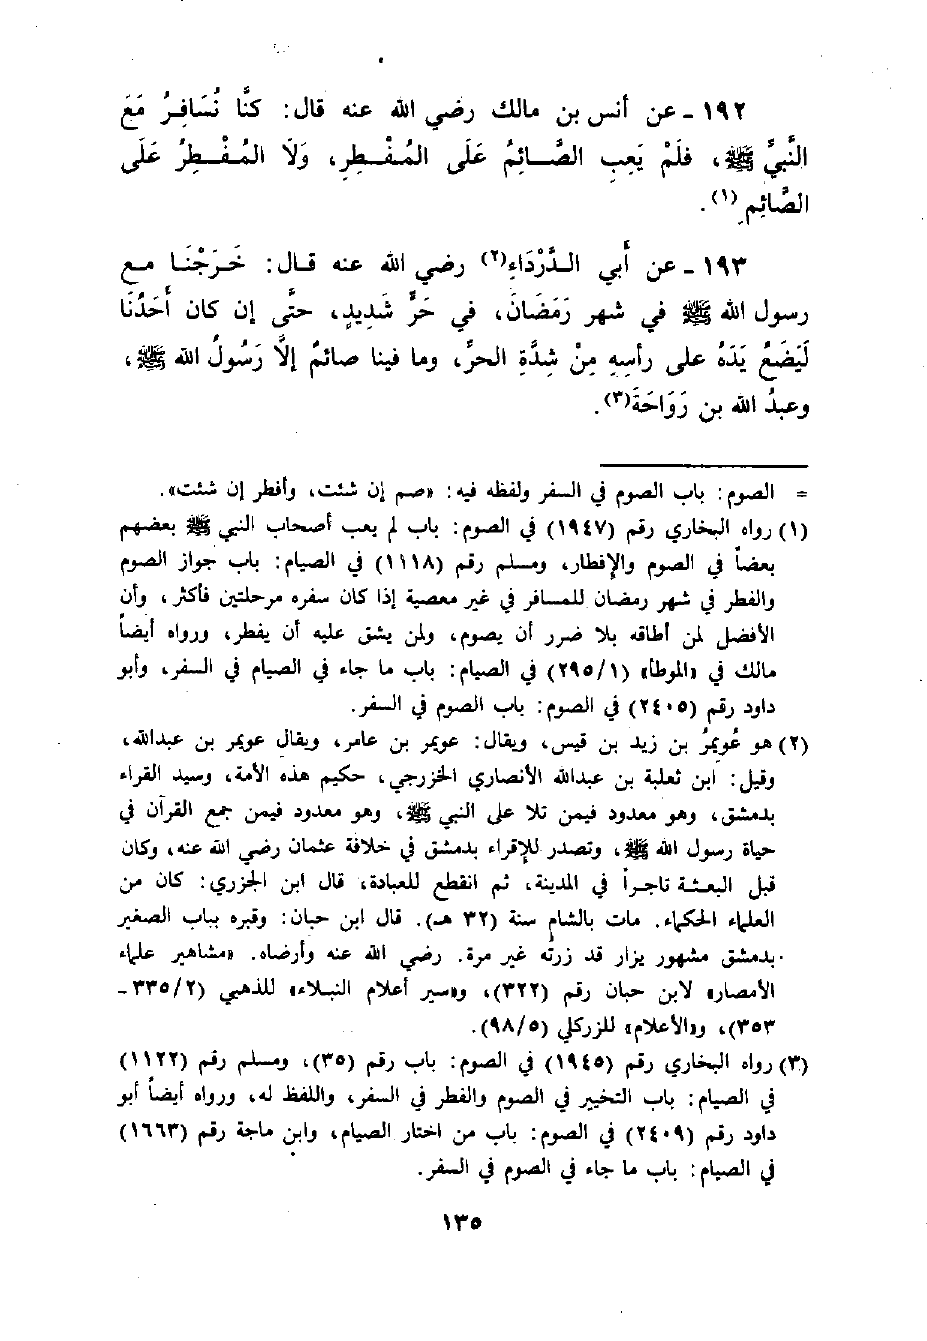 ١٩٢ ـ عن أنس بن مالك رضي الله عنه قال: كنَّا نُسَافِرُ مَعَ
النَّبيِّ ﷺ، فلَمْ يَعِبِ الصَّائِمُ عَلَى المُفْطِرِ، وَلَا المُفْطِرُ عَلَى
الصَّائِمِ(١).
١٩٣ ـ عن أَبي الدَّرْدَاءِ(٢) رضي الله عنه قال: خَرَجْنَا مع
رسول الله ﷺ في شهر رَمَضَانَ، في حَرٍّ شَدِيدٍ، حتَّى إن كان أَحَدُنَا
لَيَضَعُ يَدَهُ على رأسِهِ مِنْ شِدَّةِ الحرِّ، وما فينا صائمٌ إلَّا رَسُولُ الله ﷺ،
وعبدُ الله بن رَوَاحَةَ(٣).
= الصوم: باب الصوم في السفر ولفظه فيه: «صم إن شئت، وأفطر إن شئت».
(١) رواه البخاري رقم (١٩٤٧) في الصوم: باب لم يعب أصحاب النبي ﷺ بعضهم
بعضاً في الصوم والإفطار، ومسلم رقم (١١١٨) في الصيام: باب جواز الصوم
والفطر في شهر رمضان للمسافر في غير معصية إذا كان سفره مرحلتين فأكثر، وأن
الأفضل لمن أطاقه بلا ضرر أن يصوم، ولمن يشق عليه أن يفطر، ورواه أيضاً
مالك في «الموطأ» (٢٩٥/١) في الصيام: باب ما جاء في الصيام في السفر، وأبو
داود رقم (٢٤٠٥) في الصوم: باب الصوم في السفر.
(٢) هو عُويمرُ بن زيد بن قيس، ويقال: عويمر بن عامر، ويقال عويمر بن عبدالله،
وقيل: ابن ثعلبة بن عبدالله الأنصاري الخزرجي، حكيم هذه الأمة، وسيد القراء
بدمشق، وهو معدود فيمن تلا على النبي ﷺ، وهو معدود فيمن جمع القرآن في
حياة رسول الله ﷺ، وتصدر للإقراء بدمشق في خلافة عثمان رضي الله عنه، وكان
قبل البعثة تاجراً في المدينة، ثم انقطع للعبادة، قال ابن الجزري: كان من
العلماء الحكماء. مات بالشام سنة (٣٢ هـ). قال ابن حبان: وقبره بباب الصغير
بدمشق مشهور يزار قد زرته غير مرة. رضي الله عنه وأرضاه. «مشاهير علماء
الأمصار» لابن حبان رقم (٣٢٢)، و«سير أعلام النبلاء» للذهبي (٣٣٥/٢ ـ
٣٥٣)، و«الأعلام» للزركلي (٩٨/٥).
(٣) رواه البخاري رقم (١٩٤٥) في الصوم: باب رقم (٣٥)، ومسلم رقم (١١٢٢)
في الصيام: باب التخيير في الصوم والفطر في السفر، واللفظ له، ورواه أيضاً أبو
داود رقم (٢٤٠٩) في الصوم: باب من اختار الصيام، وابن ماجة رقم (١٦٦٣)
في الصيام: باب ما جاء في الصوم في السفر.
١٣٥